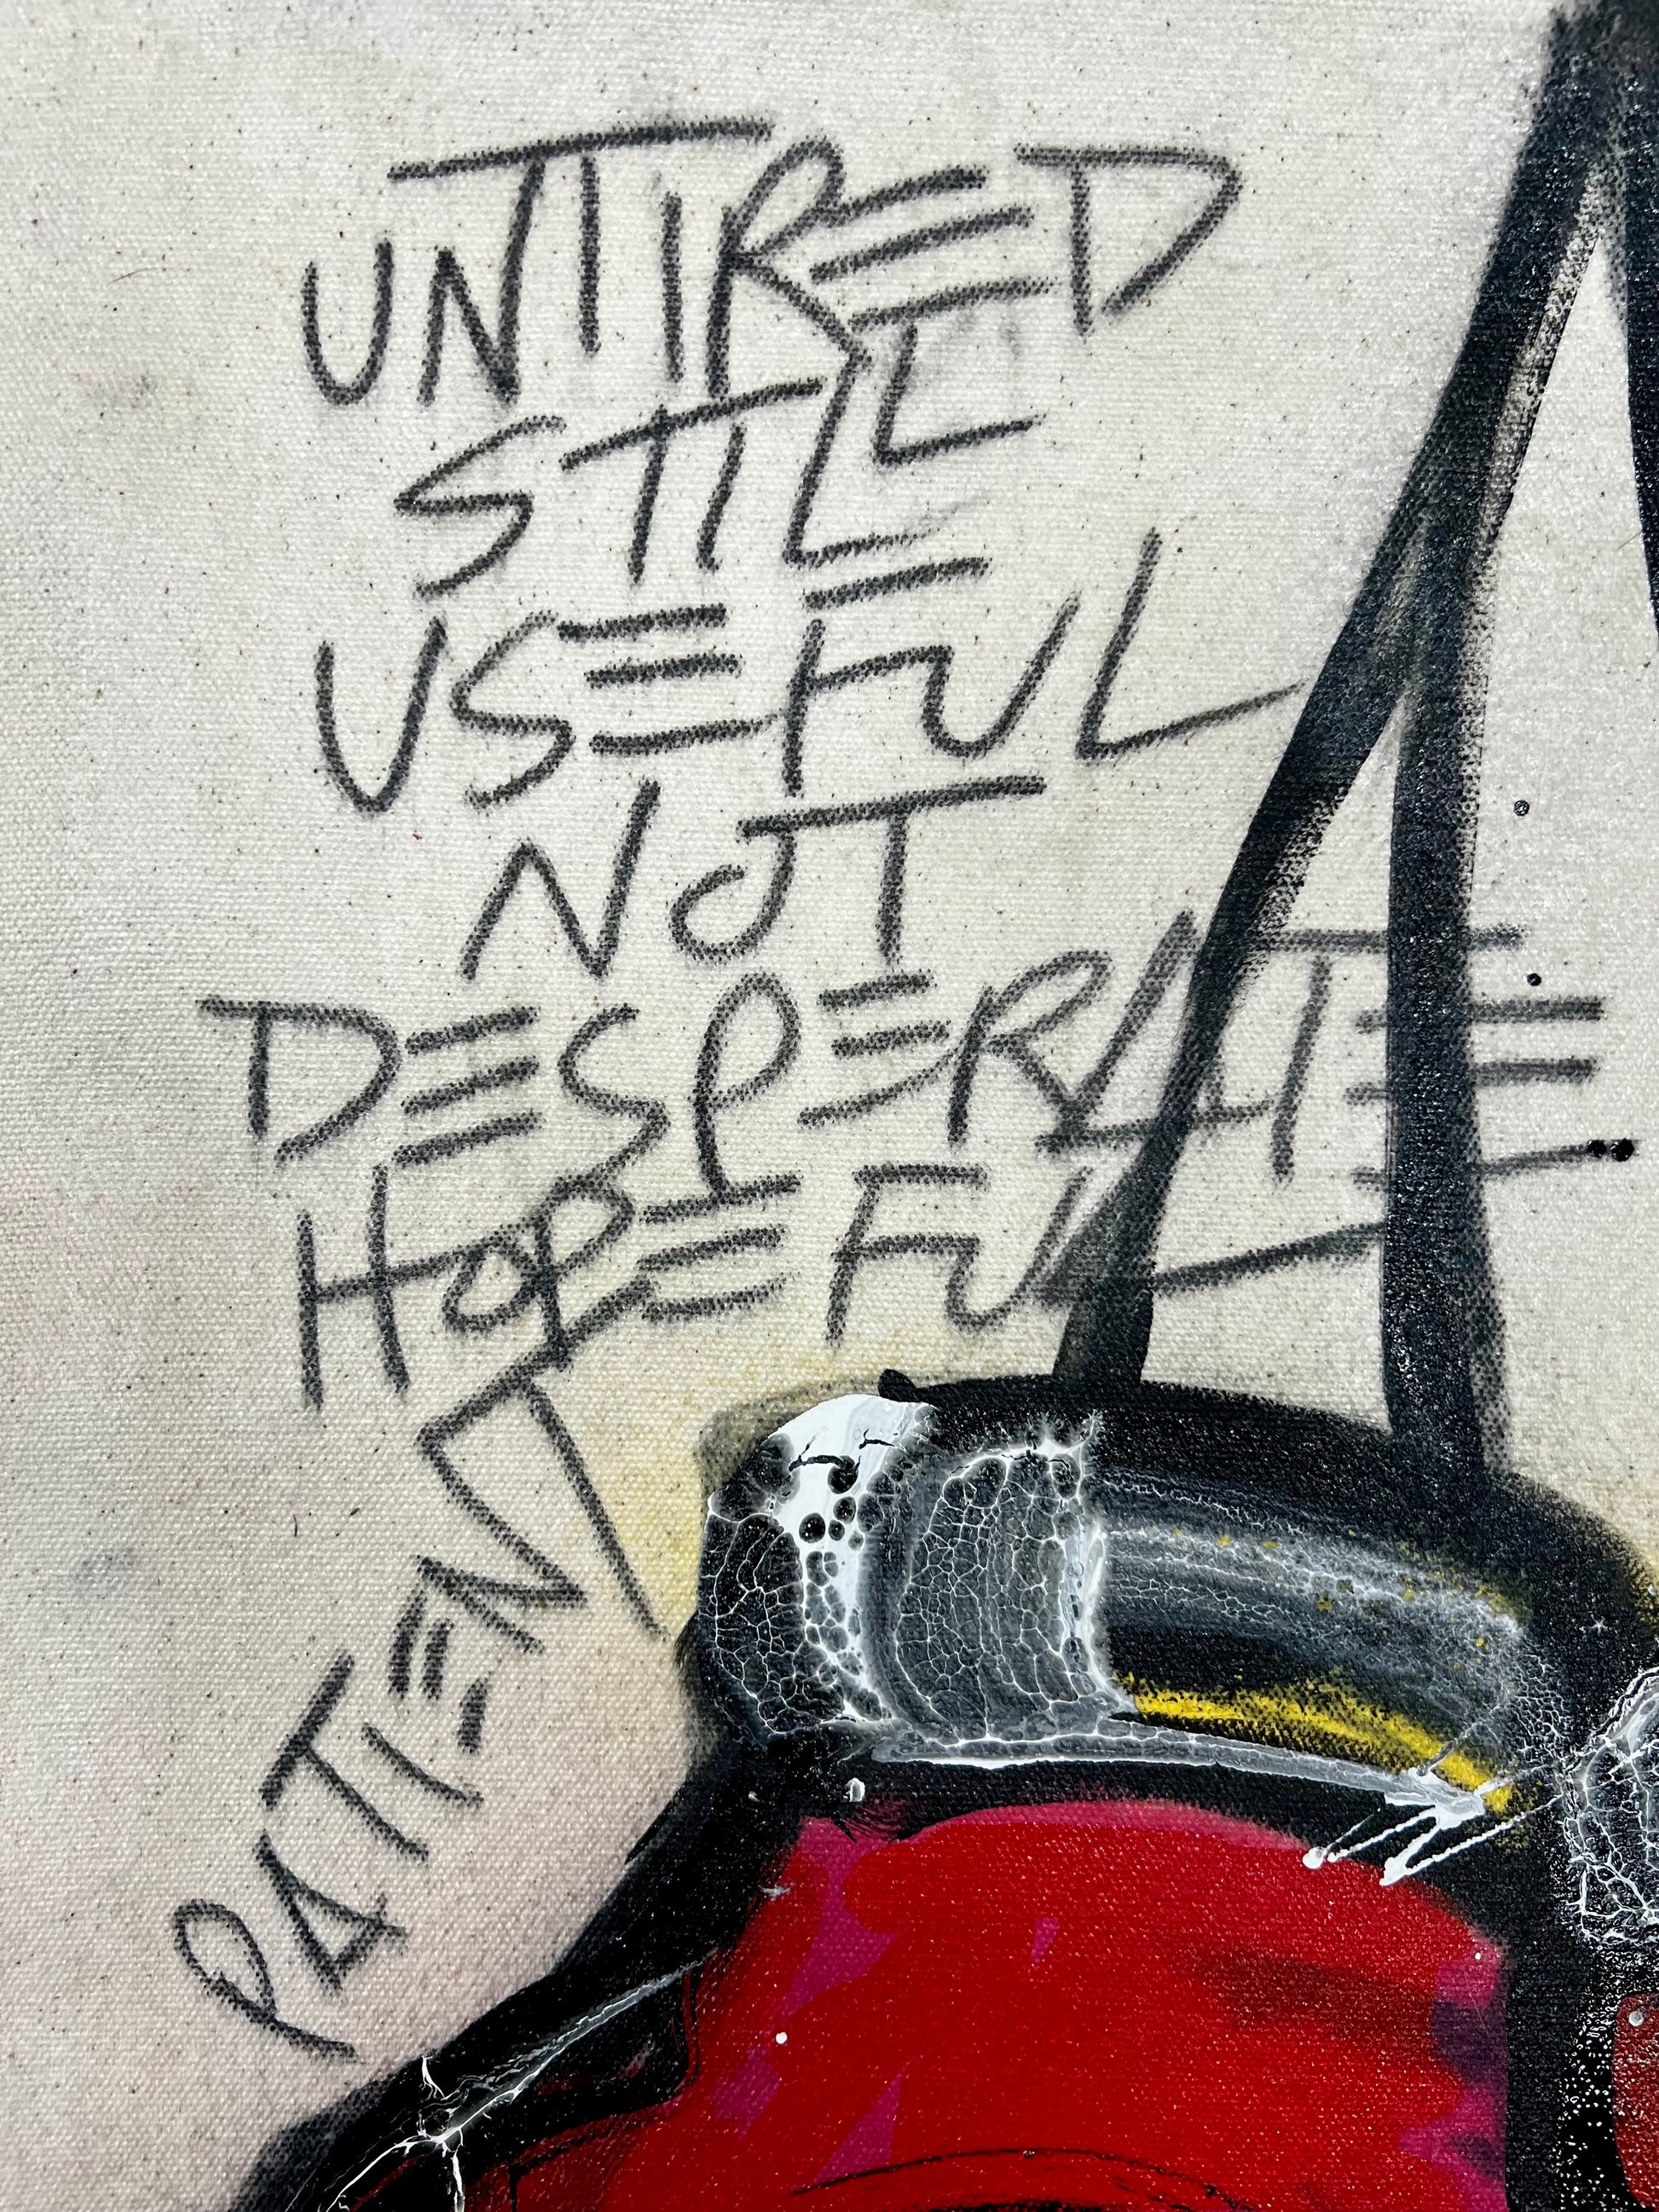 UNTIRED
STILL
USEFUL
NOT
DESPERATE
HOPEFUL
PATIENT